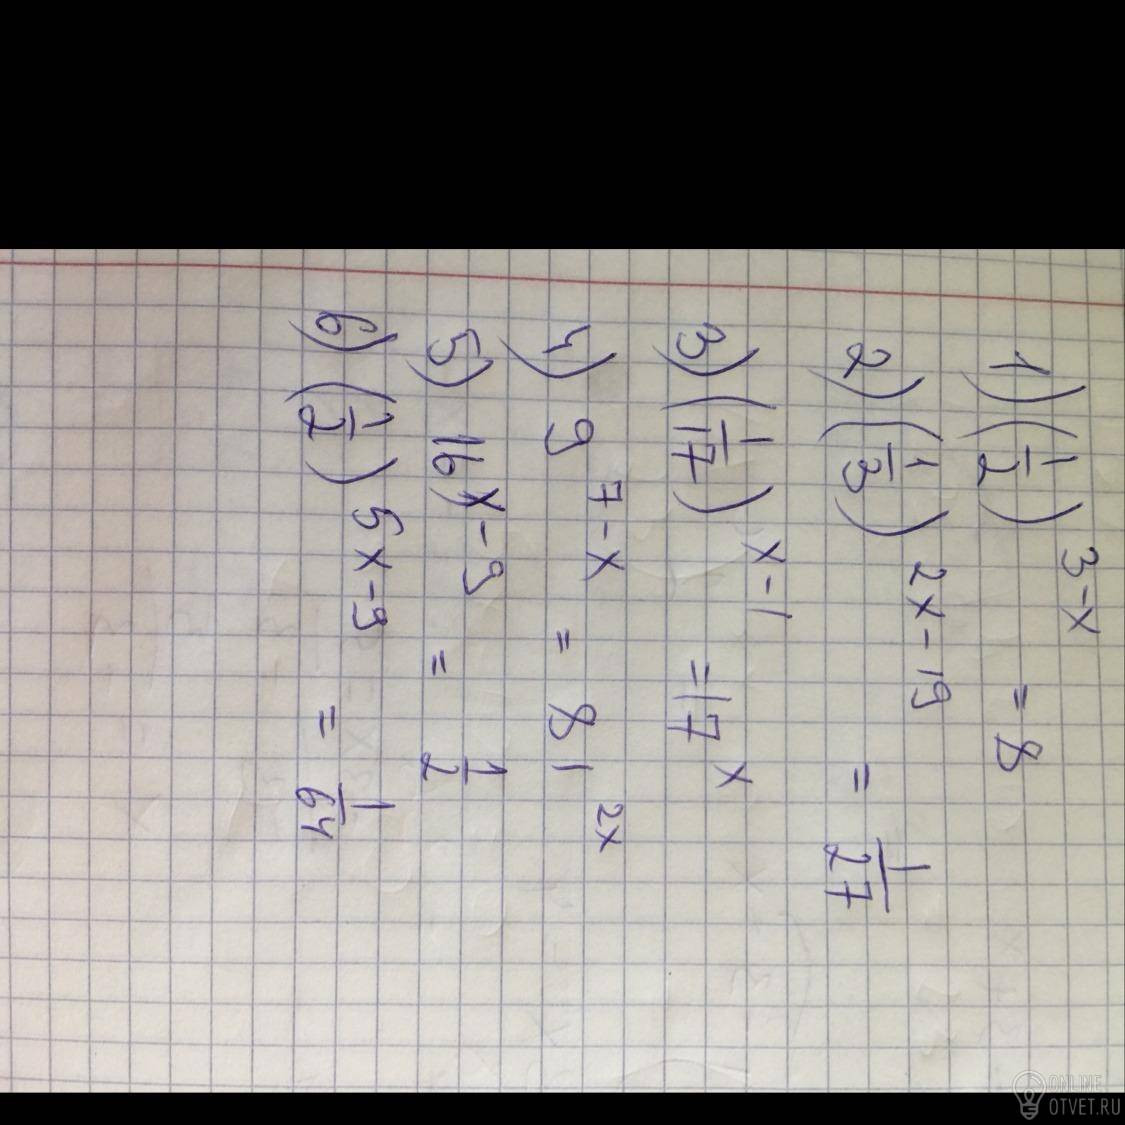 1) (1/2)^(3-x) = 8
2) (1/3)^(2x-19) = 1/27
3) (1/17)^(x-1) = 17^x
4) 9^(7-x) = 81^(2x)
5) 16^(x-9) = 1/2
6) (1/2)^(5x-9) = 1/64
ONLINE
OTVET.RU